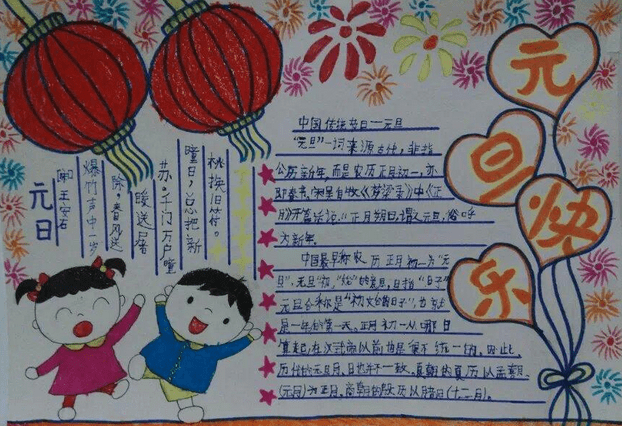 元
旦
快
乐
元日
王安石
爆竹声中一
除,春风送
暖送屠
苏。千门万户曈
曈日,总把新
换旧符。
中国传统节日—元旦
"元旦"一词来源古代,非指
公历新年,而是农历正月初一,亦
即春节,自牧《梦梁录》中《正
月》开篇话说:"正月朔日,谓之元旦,俗呼
为新年。
中国最早称农历正月初一为"元
旦",元是"初""始"的意思,旦指"日子",
元旦合称是"初始的日子",也就
是一年的第一天。正月初一从哪日
算起,在汉武帝以前也是很不统一的。因此,
历代的元旦月、日也并不一致。夏朝的夏历以孟喜月
(元月)为正月,商朝的殷历以腊月(十二月)。